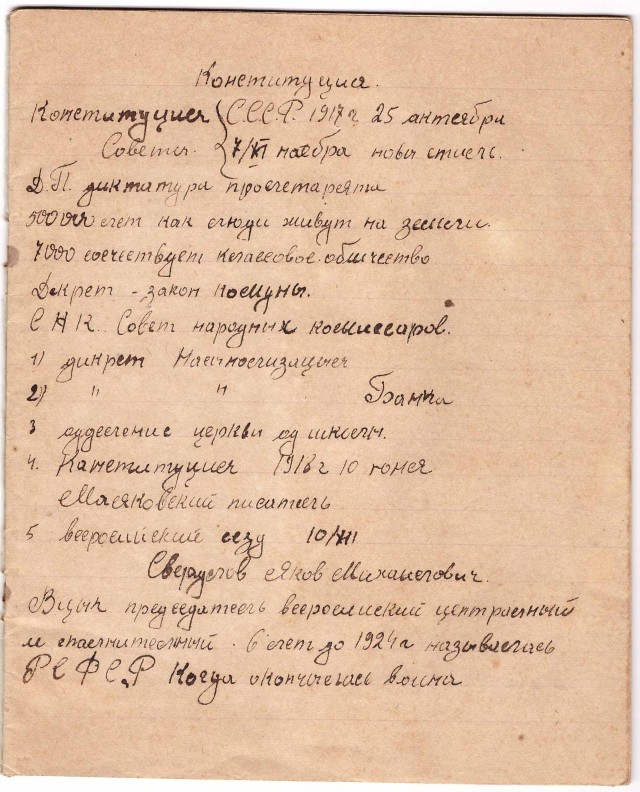 Конституция.
Конституция С.С.С.Р. 1917 г 25 актеября
Советы. 7/XI наебра новы стиль.
Д.П. диктатура пролетареята
500 000 лет как люди живут на земли.
7000 сочествует класовое общчество
Дкрет - закон комуны.
С Н К. Совет народных комиссаров.
1) дикрет Нацинолизацыея
2) " " Банка
3 одделение церкви од школы.
4. Канституцией 1918 г 10 юнея
Маяковский писатель
5 всеросийский сезд 10/VII
Свердлов Яков Михаилович.
Вцык председатель всеросийский централный
и сполнителный. 6 лет до 1924 г называлась
Р С Ф С Р Когда окончилась война